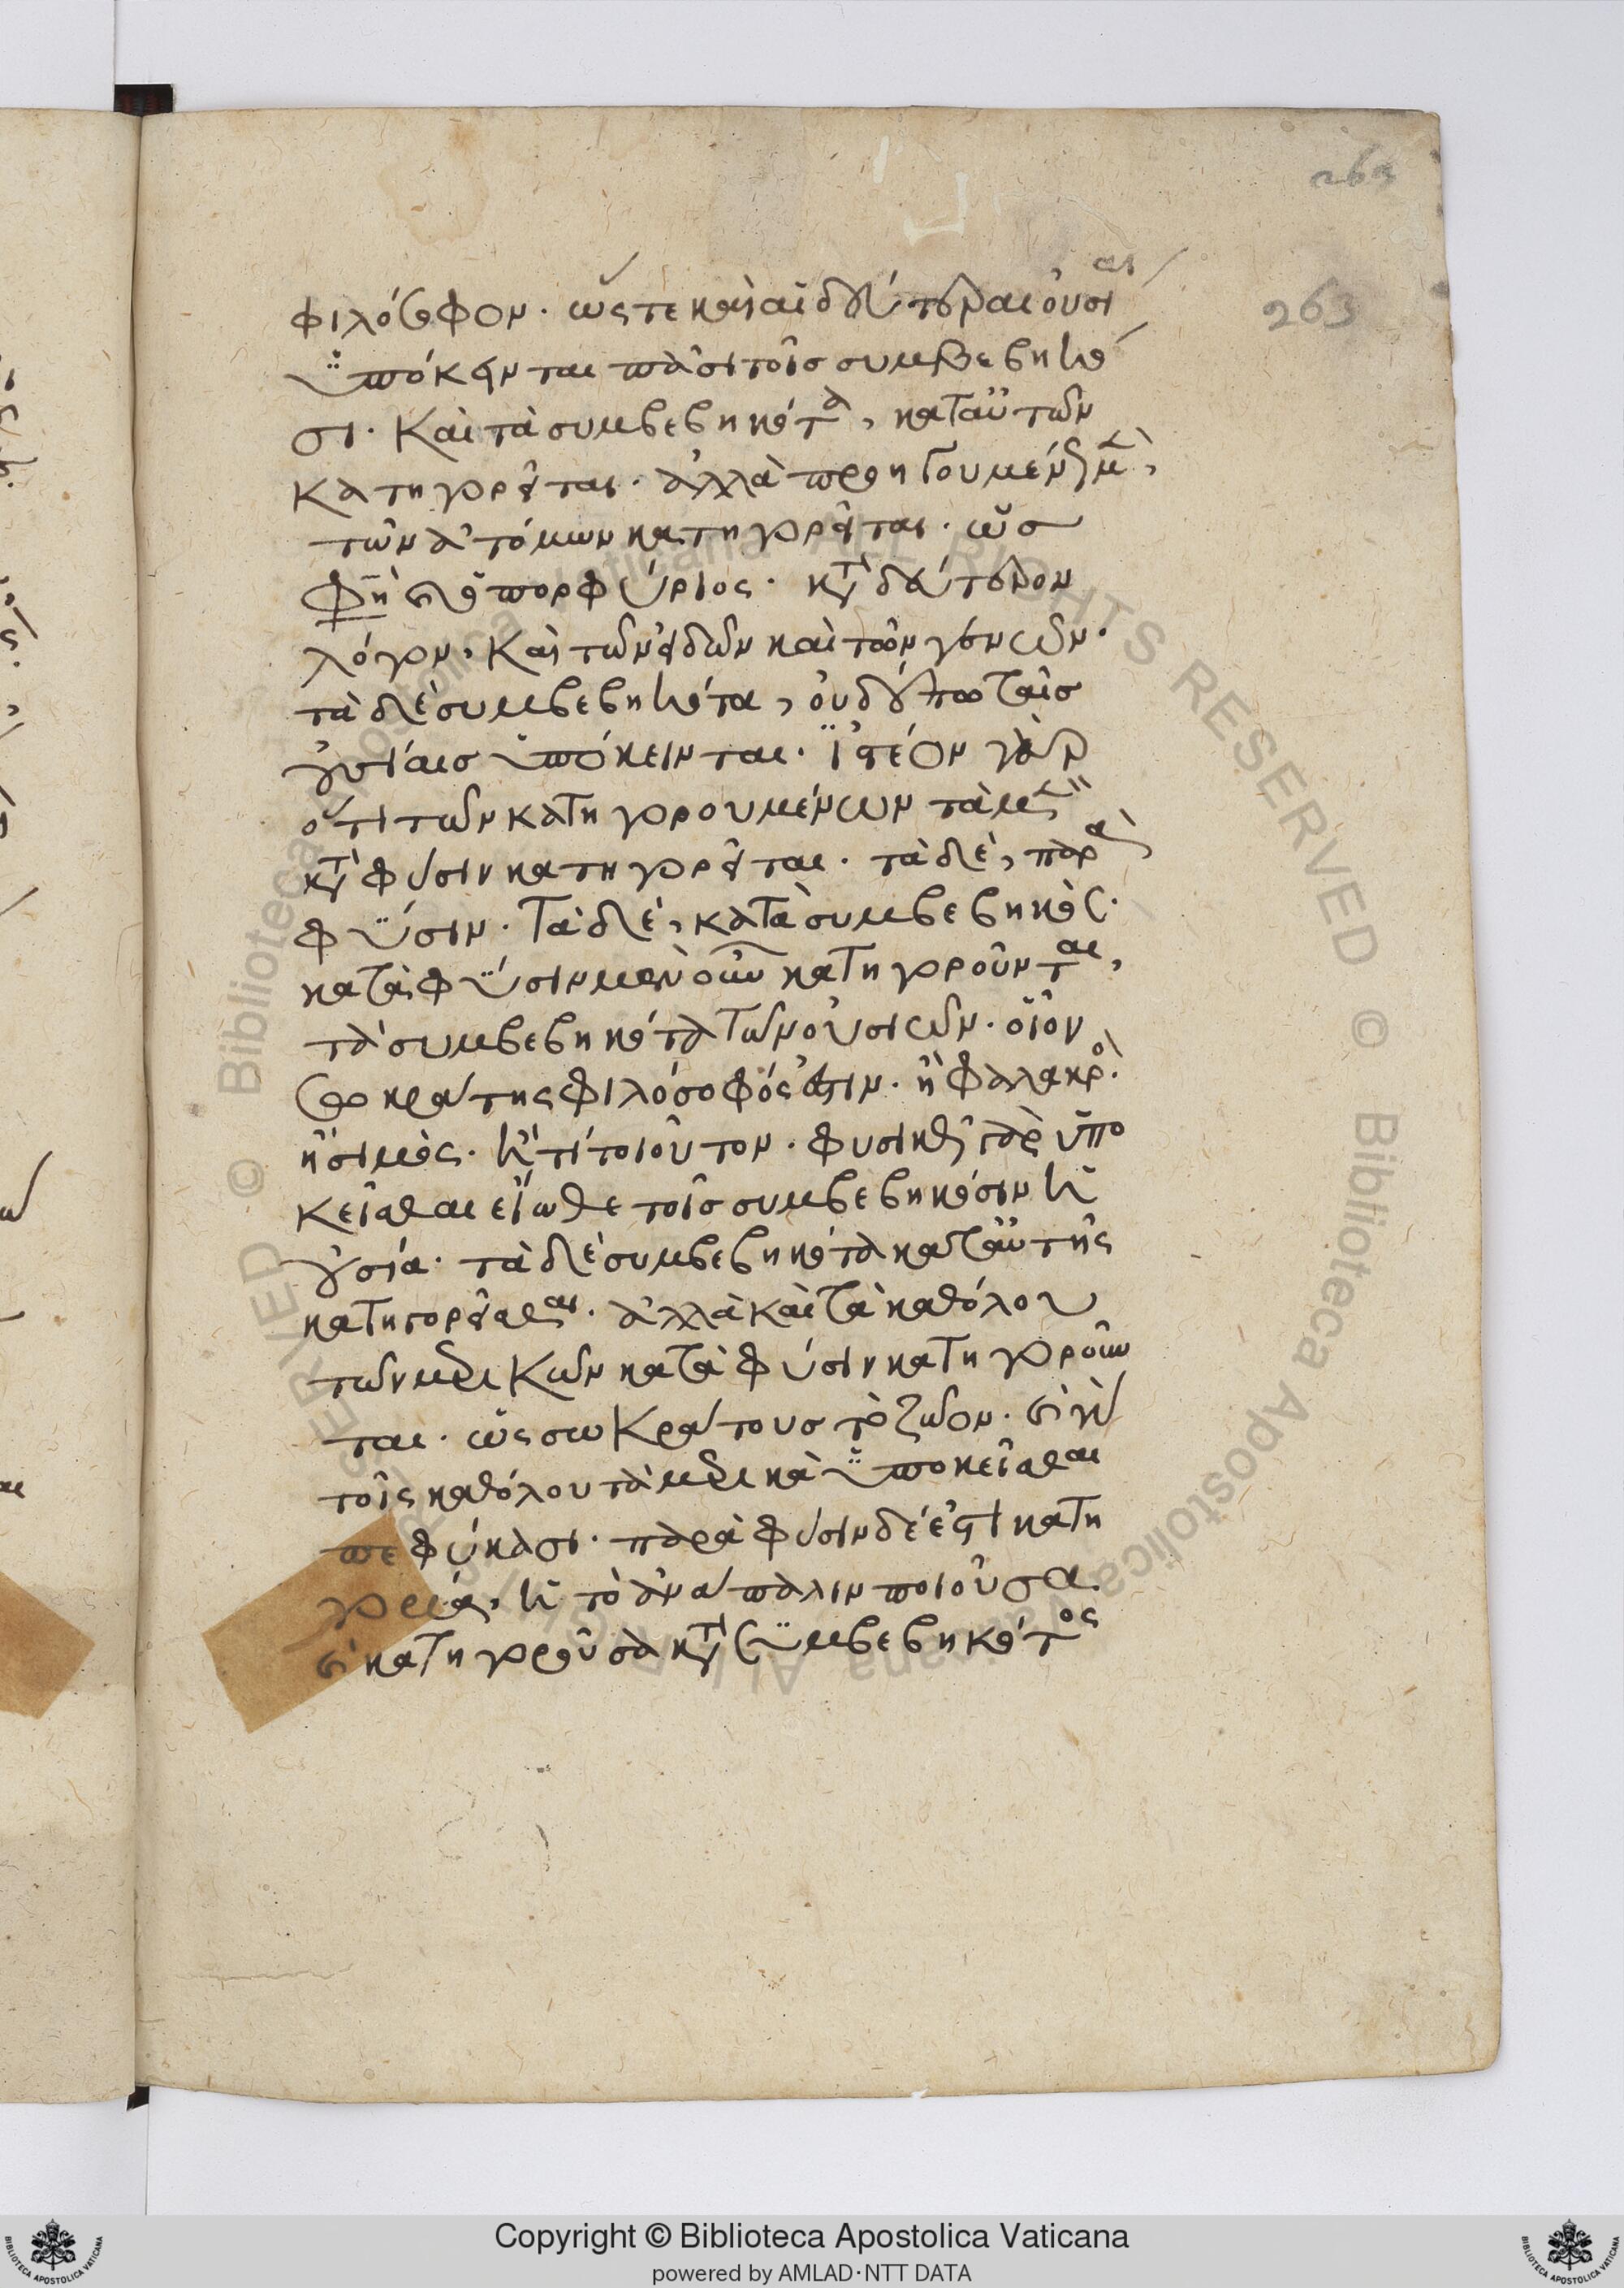 263
263
φιλόσοφον. ὥστε καὶ αἱ δεύτεραι οὐσίαι
ὑπόκεινται πᾶσι τοῖς συμβεβηκό
σι. Καὶ τὰ συμβεβηκότα, κατ' αὐτῶν
κατηγορεῖται. ἀλλὰ προηγουμένως μὲν,
τῶν ἀτόμων κατηγορεῖται. ὥς
φησι ὁ πορφύριος. κατὰ δεύτερον
λόγον, Καὶ τῶν εἰδῶν καὶ τῶν γενῶν.
τὰ δὲ συμβεβηκότα, οὐδέποτε ταῖς
οὐσίαις ὑπόκεινται. Ἰστέον γὰρ
ὅτι τῶν κατηγορουμένων τὰ μὲν
κατὰ φύσιν κατηγορεῖται. τὰ δὲ, παρὰ
φύσιν. Τὰ δὲ, κατὰ συμβεβηκός.
κατὰ φύσιν μὲν οὖν κατηγοροῦνται,
τὰ συμβεβηκότα τῶν οὐσιῶν. οἷον
σωκράτης φιλόσοφός ἐστιν. ἢ φαλακρός.
ἢ σιμὸς. ἤ τι τοιοῦτον. φυσικῶς γὰρ ὑπο
κεῖσθαι εἴωθε τοῖς συμβεβηκόσιν ἡ
οὐσία. τὰ δὲ συμβεβηκότα κατ' αὐτῆς
κατηγορεῖσθαι. ἀλλὰ καὶ τὰ καθόλου
τῶν μερικῶν κατὰ φύσιν κατηγοροῦν
ται. ὡς σωκράτους τὸ ζῶον. ἐπειδὴ
τοῖς καθόλου τὰ μερικὰ ὑποκεῖσθαι
πεφύκασι. παρὰ φύσιν δέ ἐστι κατη
γορία, ἡ τὸ ἀνάπαλιν ποιοῦσα.
καὶ κατηγοροῦσα κατὰ συμβεβηκότος
Copyright © Biblioteca Apostolica Vaticana
powered by AMLAD·NTT DATA